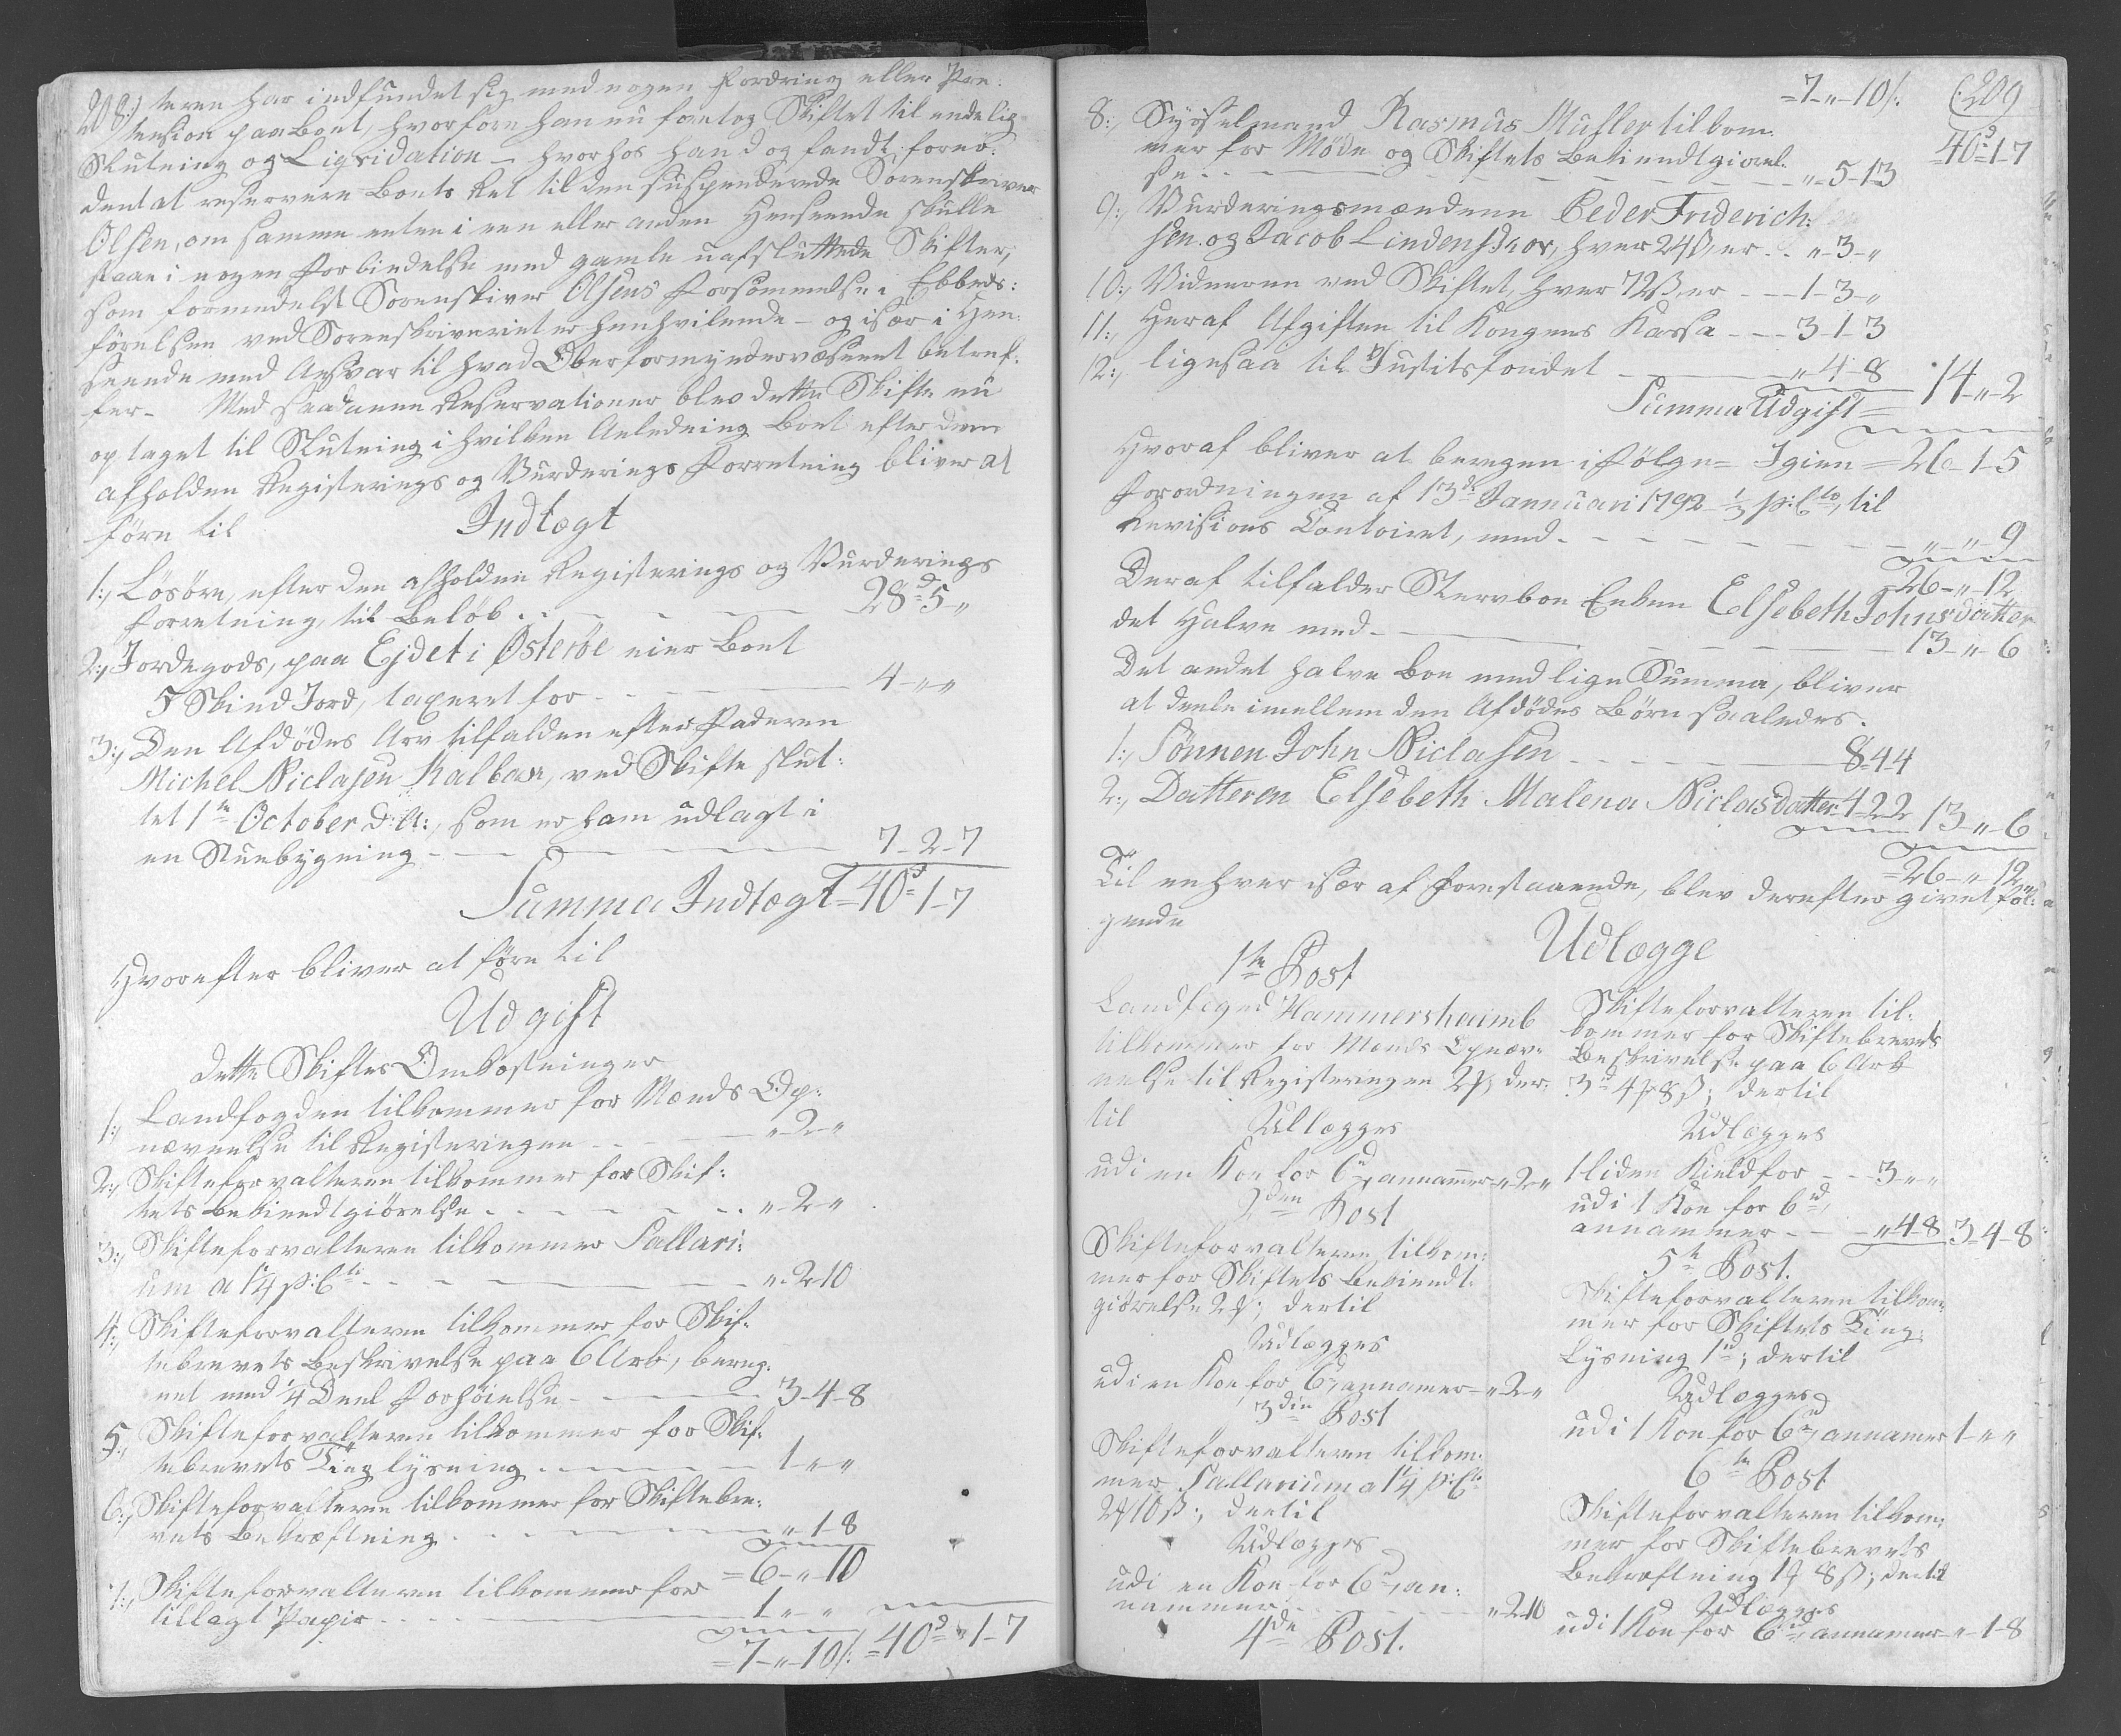 208:) teren har indfundet sig med nogen Fordring eller Præ-
tension paa Boet, hvorfore han nu foretog Skiftet til endelig
Slutning og Liqvidation – hvorhos hand og fandt fornø-
dent at reservere Boets Ret til den suspenderede Sorenskriver
Olsen, om samme enten i een eller anden Henseende skulle
staae i nogen Forbindelse med gamle uafsluttede Skifter,
som formedelst Sorenskriver Olsens Forsømmelse i Embeds:
førelsen ved Sorenskriveriet er henhvilende – og især i Hen-
seende med Ansvar til hvad Overformynderwæsenet betref-
fer – Med saadanne Reservationer blev dette Skifte nu
optaget til Slutning i hvilken Anledning Boet efter den
afholden Registerings og Vurderings Forretning bliver at
føre til
Indtægt
1:, Løsøre, efter den afholden Registerings og Vurderings
Forretning, til Beløb - - - 28d 5 "
2:, Jordegods, paa Ejdet i Østerøe eier Boet
5 Skind Jord, taxeret for - - - 4 - " - "
3:, Den Afdødes Arv tilfalden efter Faderen
Michel Niclasen Kalbak, ved Skifte slut:
tet 1te October d: A:, som er ham udlagt i
en Stuebygning - - - 7 - 2 - 7
Summa Indtægt = 40d 1 - 7
Hvorefter bliver at føre til
Udgift
Dette Skiftes Omkostninger
1:, Landfogden tilkommer for Mænds Op:
nævnelse til Registeringen - - - " - 2 - "
2:, Skifteforvalteren tilkommer for Skif:
tets Bekiendtgiørelse - - - " - 2 - "
3:, Skifteforvalteren tilkommer Sallari:
um a 1¼ p:Cto - - - " - 2 - 10
4:, Skifteforvalteren tilkommer for Skif-
tebrevets Beskrivelse paa 6 Ark, bereg-
net med ¼ Deel Forhøielse - - - 3 - 4 - 8
5:, Skifteforvalteren tilkommer for Skif-
tebrevets Tinglysning - - - 1 - " - "
6:, Skifteforvalteren tilkommer for Skiftebre:
vets Bekræftning - - - " - 1 - 8
= 6 - " - 10
7:, Skifteforvalteren tilkommer for
tillagt Papir - - - 1 - " - "
= 7 - " - 10/: = 40d " 1 - 7
= 7 - " - 10/: (:209
= 40d 1 - 7
8:, Sysselmand Rasmus Muller tilkom:
mer for Møde og Skiftets Bekiendtgiørel-
se - - - " - 5 - 13
9:, Vurderingsmændene Peder Friderich:
sen og Jacob Lindenskov, hver 24 ß, er - - " - 3 - "
10:, Vidnerne ved Skiftet, hver 72 ß, er - - - 1 - 3 - "
11:, Heraf Afgiften til Kongens Kassa - - - 3 - 1 - 3
12:, ligesaa til Justitsfondet - - - " 4 - 8
Summa Udgift = 14 - " - 2
Hvoraf bliver at beregne i følge = Igien = 26 - 1 - 5
Forordningen af 13de Jannuari 1792 ⅓ p:Cto, til
Revisions Contoiret, med - - - " - " - 9
= 26 - " - 12
Deraf tilfalder Stervboe Enken Elsebeth Johnsdatter
det Halve med - - - 13 - " - 6
Det andet halve Boe med lige Summa, bliver
at deele imellem den Afdødes Børn saaledes.
1:, Sønnen John Niclasen - - - 8 - 4 - 4
2:, Datteren Elsebeth Malena Niclasdatter 4 - 2 - 2 13 - " - 6
= 26 - " - 12
Til enhver især af Forestaaende, blev derefter givet føl:
gende
Udlægge
1te Post
Landfoged Hammershaimb
tilkommer for Mænds Opnæv-
nelse til Registeringen 2 ꝟ, der-
til
Udlægges
udi en Koe for 6d, annammer - " 2 "
2den Post
Skifteforvalteren tilkom:
mer for Skiftets Bekiendt-
giørelse 2 ꝟ; dertil
Udlægges
udi en Koe for 6d, annamer - " 2 - "
3die Post
Skifteforvalteren tilkom:
mer Sallarium a 1¼ p:Cto
2 ꝟ 10 ß; dertil
Udlægges
udi en Koe for 6d, an-
nammer - - - " 2 - 10
4de Post.
Skifteforvalteren til-
kommer for Skiftebrevets
Beskrivelse paa 6 Ark
3d 4 ꝟ 8 ß; dertil
Udlægges
1 liden Kield for - - 3 - " - "
udi 1 Koe for 6d,
annammer - - - " 4 - 8 3 - 4 - 8
5te Post.
Skifteforvalteren tilkom-
mer for Skiftets Ting-
Lysning 1d; dertil
Udlægges
udi 1 Koe for 6d, annamer 1 - " "
6te Post
Skifteforvalteren tilkom:
mer for Skiftebrevets
Bekræftning 1 ꝟ 8 ß; dertil
Udlægges
udi 1 Koe for 6d, annamer - " - 1 - 8